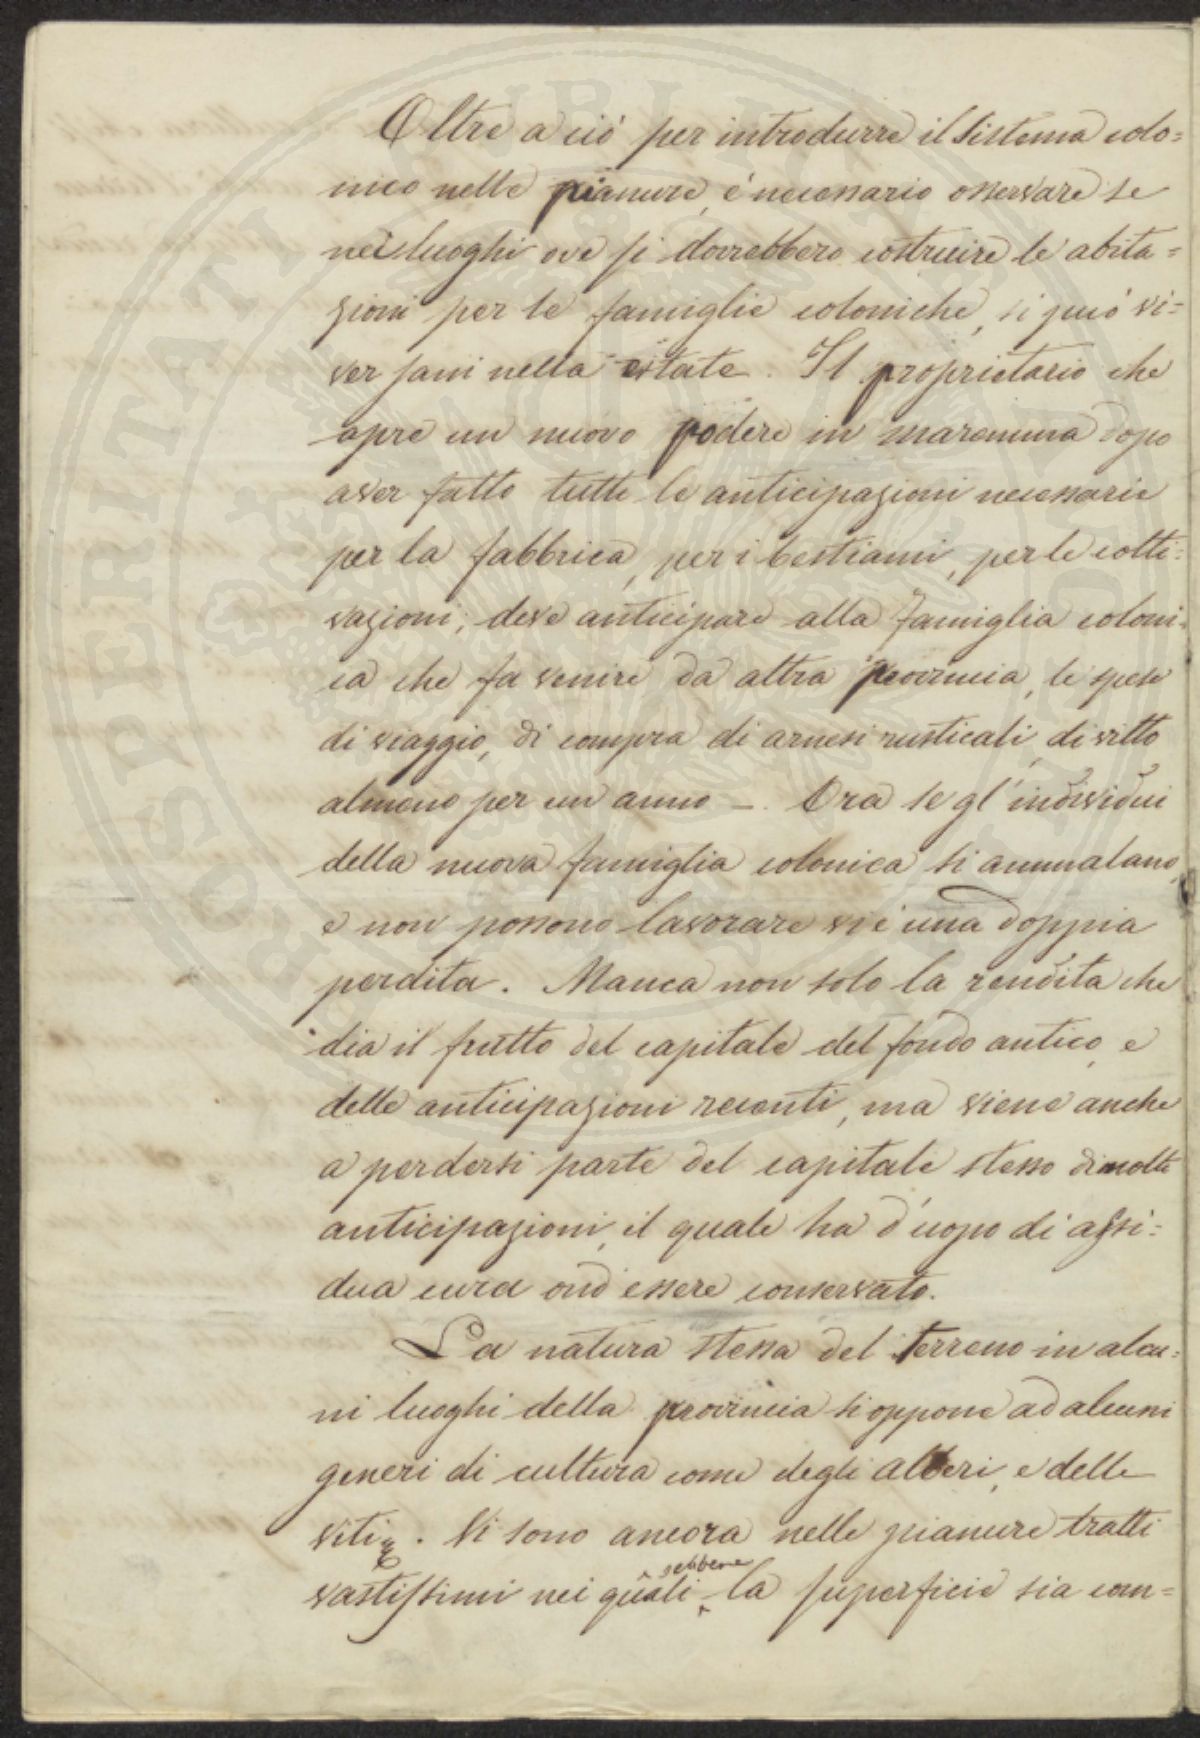 Oltre a ciò per introdurre il sistema colo=
nico nelle pianure, è necessario osservare se
nei luoghi ove si dovrebbero costruire le abita=
zioni per le famiglie coloniche, si può vi=
ver sani nella estate. Il proprietario che
apre un nuovo podere in maremma dopo
aver fatto tutte le anticipazioni necessarie
per la fabbrica, per i bestiami, per le colti=
vazioni; deve anticipare alla famiglia coloni=
ca che fa venire da altra provincia, le spese
di viaggio, di compra di arnesi rusticali, di vitto
almeno per un anno –. Ora se gl'individui
della nuova famiglia colonica si ammalano,
e non possono lavorare vi è una doppia
perdita. Manca non solo la rendita che
dia il frutto del capitale del fondo antico, e
delle anticipazioni recenti, ma viene anche
a perdersi parte del capitale stesso di molte
anticipazioni, il quale ha d'uopo di assi=
dua cura ond'essere conservato.
La natura stessa del terreno in alcu=
ni luoghi della provincia si oppone ad alcuni
generi di cultura come degli alberi, e delle
viti. Vi sono ancora nelle pianure tratti
sebbene
vastissimi nei quali la superficie sia com=
PROSPERITATI PUBLICAE